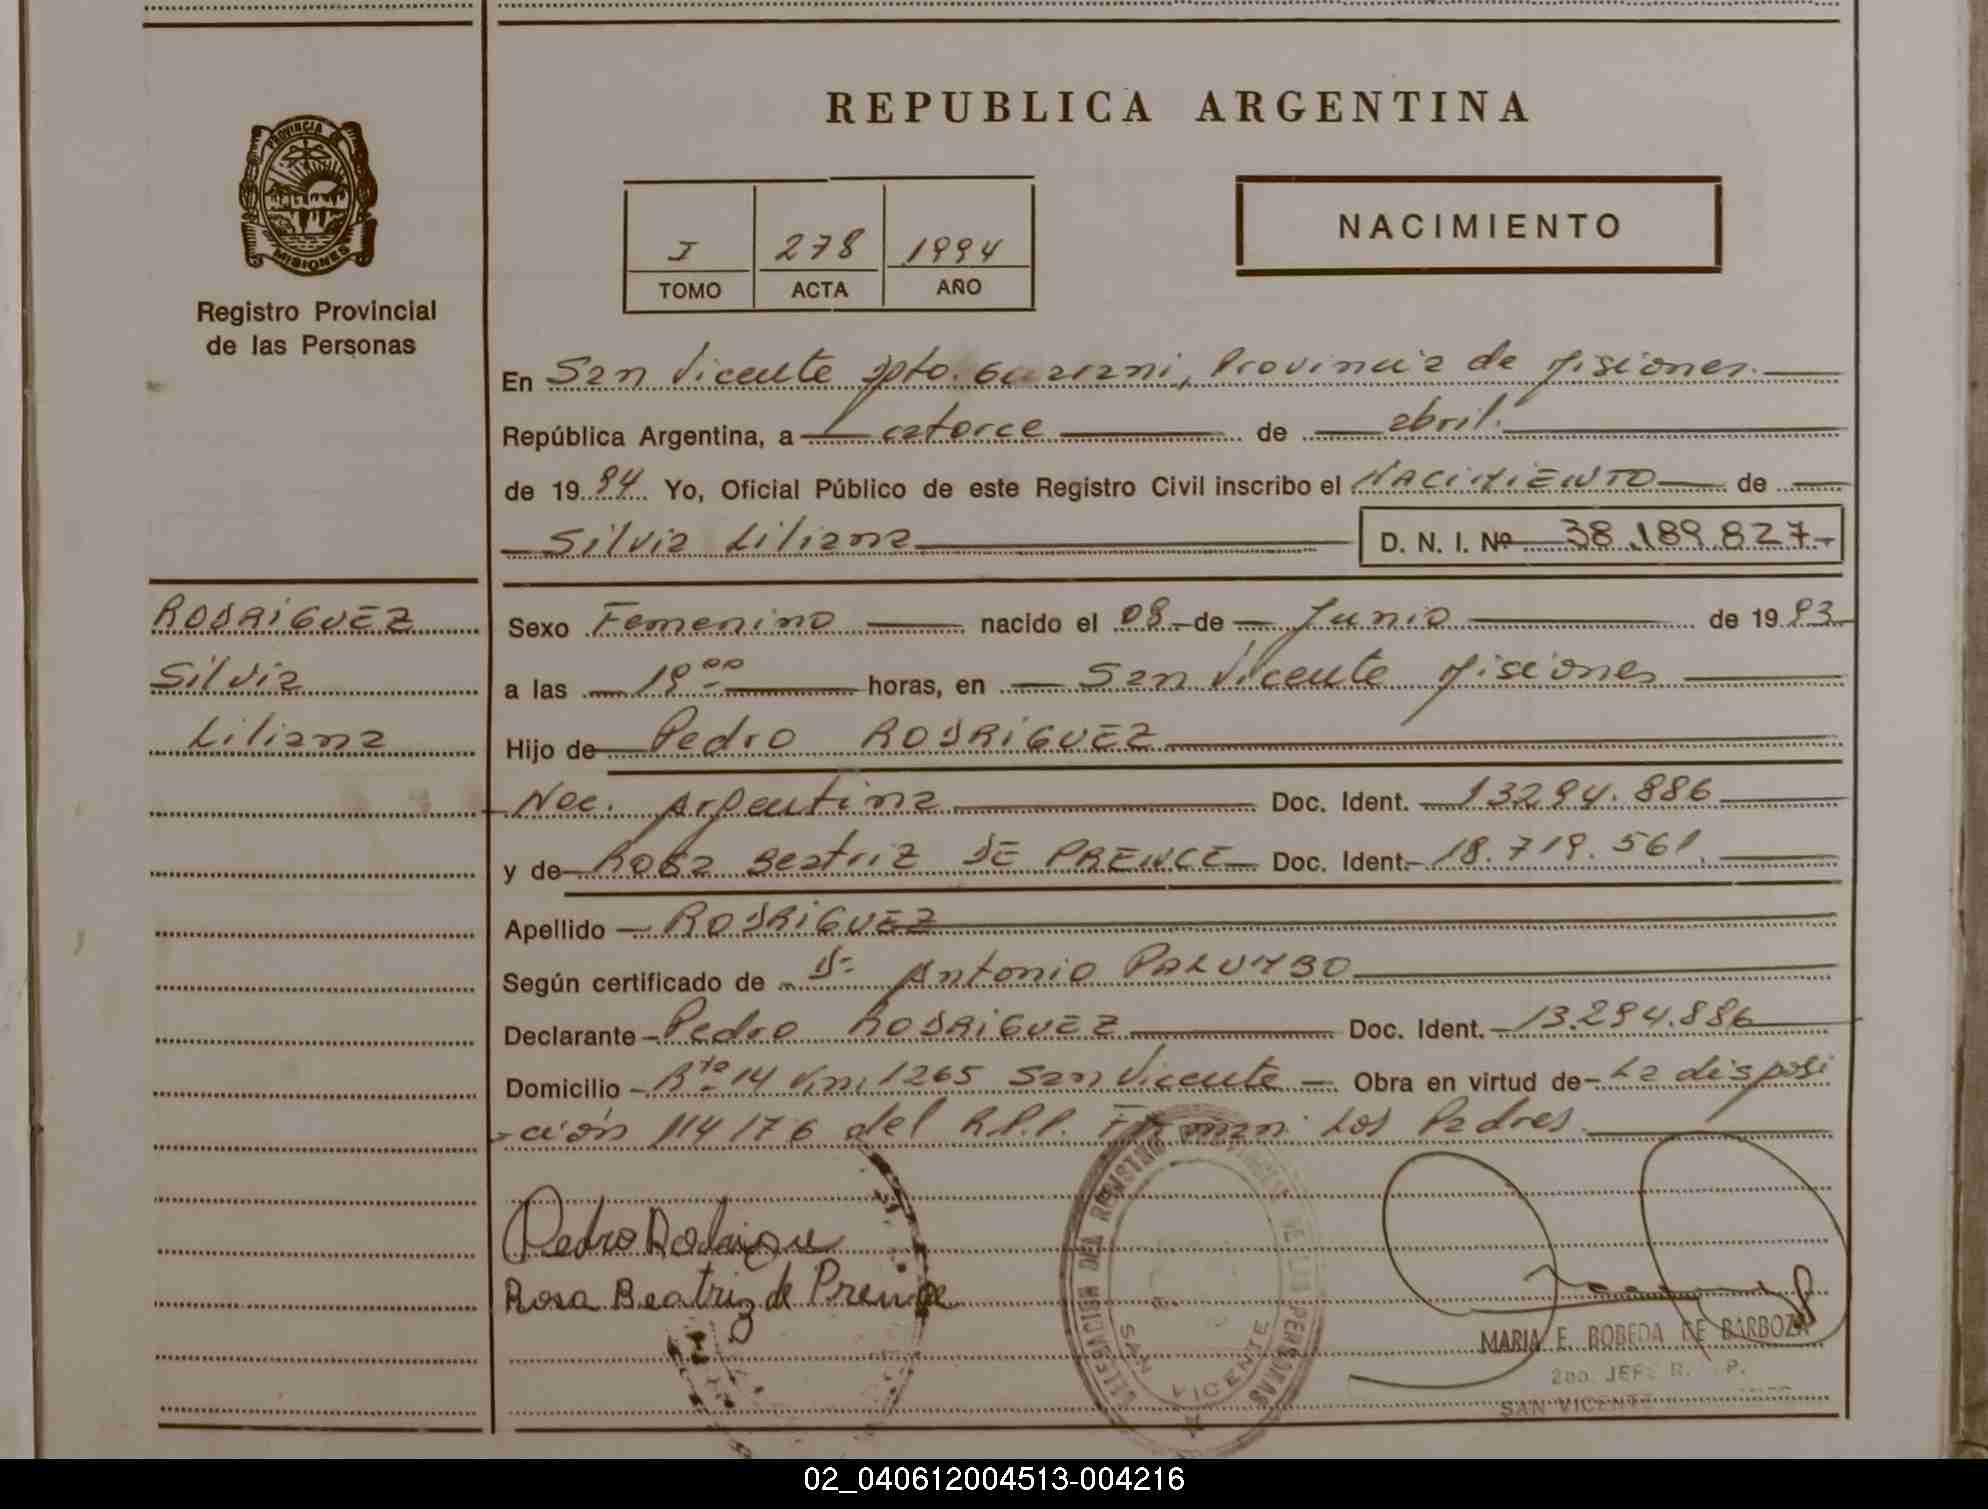 REPUBLICA ARGENTINA
PROVINCIA DE
MISIONES
Registro Provincial
de las Personas
I 278 1994
TOMO ACTA AÑO
NACIMIENTO
En San Vicente Dpto. Guarani, Provincia de Misiones.
República Argentina, a catorce de abril.
de 1994 Yo, Oficial Público de este Registro Civil inscribo el NACIMIENTO de
Silvia Liliana D. N. I. Nº 38.189.827-
RODRIGUEZ
Silvia
Liliana
Sexo Femenino nacido el 08 de Junio de 1993
a las 19 00 horas, en San Vicente Misiones
Hijo de Pedro RODRIGUEZ
Nac. Argentina Doc. Ident. 13294.886
y de Rosa Beatriz DE PRENCE Doc. Ident. 18.719.561.
Apellido RODRIGUEZ
Según certificado de Dr Antonio PALUMBO
Declarante Pedro RODRIGUEZ Doc. Ident. 13.294.886
Domicilio Rta 14 Km 1265 San Vicente Obra en virtud de La disposi
ción 114176 del R.P.P. Firman Los Padres.
Pedro Rodrigue
Rosa Beatriz de Prence
DELEGACION DEL REGISTRO PROVINCIAL DE LAS PERSONAS
SAN VICENTE
MARIA E. BOBEDA DE BARBOZA
2do. JEFE R. P.
SAN VICENTE
02_040612004513-004216